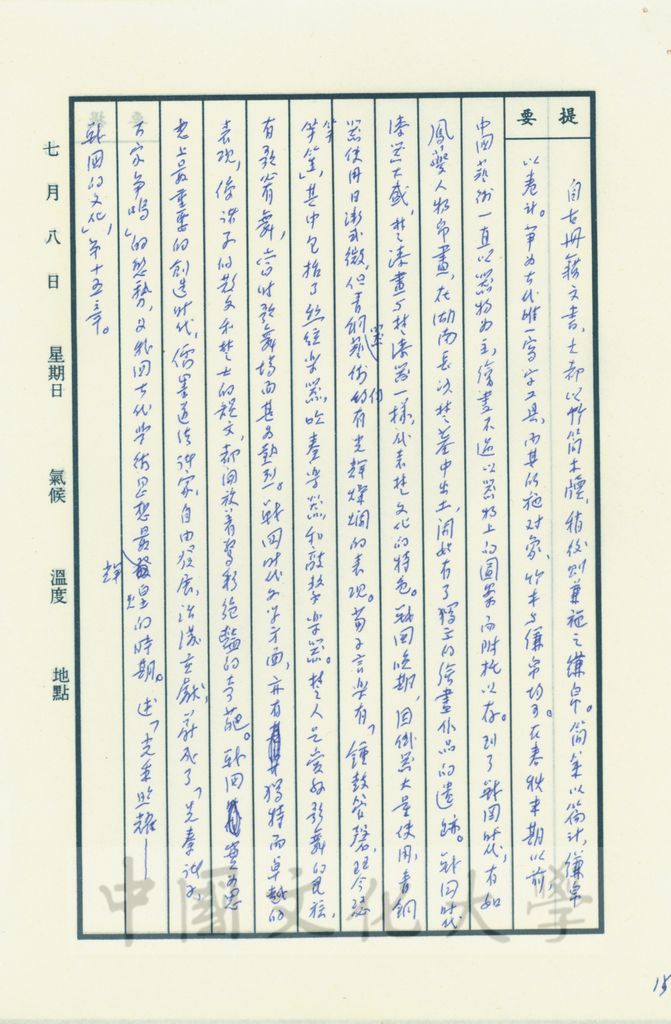 提要
自古冊籍文書，大都以竹簡木牘，稍後則兼施之縑帛。簡策以篇計，縑帛
以卷計。筆為古代惟一寫字工具，而其所施对象，竹木与縑帛均可。在春秋末期以前，
中國藝術一直以器物為主，繪畫不過以器物上的圖案而附托以存。到了戰國时代，有如
鳳夔人物帛畫，在湖南長沙楚墓中出土，開始有了獨立的繪畫作品的遺跡。戰國时代
漆器大盛，楚漆畫与楚漆器一樣，代表楚文化的特色。戰國晚期，因鐵器大量使用，青銅
器使用日漸式微，但青銅器藝術仍有光輝燦爛的表現。荀子言樂有「鐘鼓管磬，琴瑟
竽笙」，其中包括了絲弦樂器，吹奏樂器和敲擊樂器。楚人是愛好歌舞的民族，
有歌必有舞，當时歌舞場面甚為熱烈。戰國时代文学方面，亦有獨特而卓越的
表現，像諸子的散文和楚士的韻文，都開放着驚彩絕艷的大葩。戰国實為思
想上最重要的創造时代，儒墨道法諸家，自由發展，諸議並獻，蔚成了「先秦諸子，
百家爭鳴」的態勢，为我國古代学術思想最輝煌的時期。述「光采照耀——
戰國的文化」，第十五章。
七月八日 星期日 氣候 溫度 地點
15
中國文化大學